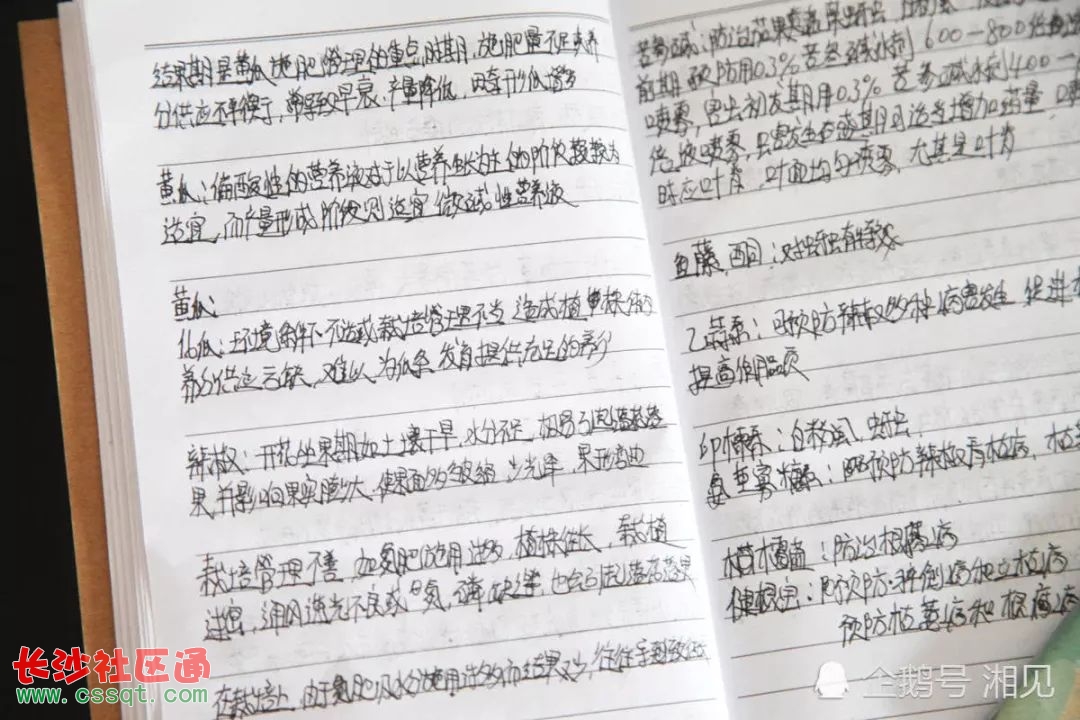 结果期是黄瓜施肥管理的重点时期,施肥量不足养
分供应不平衡,导致早衰,产量降低,
黄瓜:偏酸性的营养液对于以营养生长为主的阶段较为
适宜,而产量形成阶段则适宜微碱性营养液
黄瓜
化瓜:环境条件不适或栽培管理不当造成植株
养分供应亏缺,难以为瓜条发育提供充足的养分
辣椒:开花坐果期如土壤干旱,水分不足,极易引起落花落
果,并影响果实膨大,使果面多皱缩,少光泽,果形弯曲
栽培管理不善,如氮肥施用过多,植株徒长,栽植
过密,通风透光不良或氮,磷缺乏,也会引起落花落果
在栽培上,由于氮肥水分施用过多而结果又少,往往导致徒长
苦参碱:防治
前期预防用0.3%苦参碱水剂600-800倍液
喷雾,害虫初发期用0.3%苦参碱水剂400-
倍液喷雾,虫害发生盛期可适当增加药量,
时应叶背,叶面均匀喷雾,尤其是叶背
鱼藤酮:对蚜虫有特效
乙蒜素:可预防辣椒多种病害发生 促进
提高作物品质
印楝素:白粉虱,蚜虫
氨基寡糖素:预防辣椒青枯病,
木霉菌:防治根腐病
健根宝:预防立枯病
预防枯萎病和根腐病
长沙社区通
www.cssqt.com
企鹅号 湘见